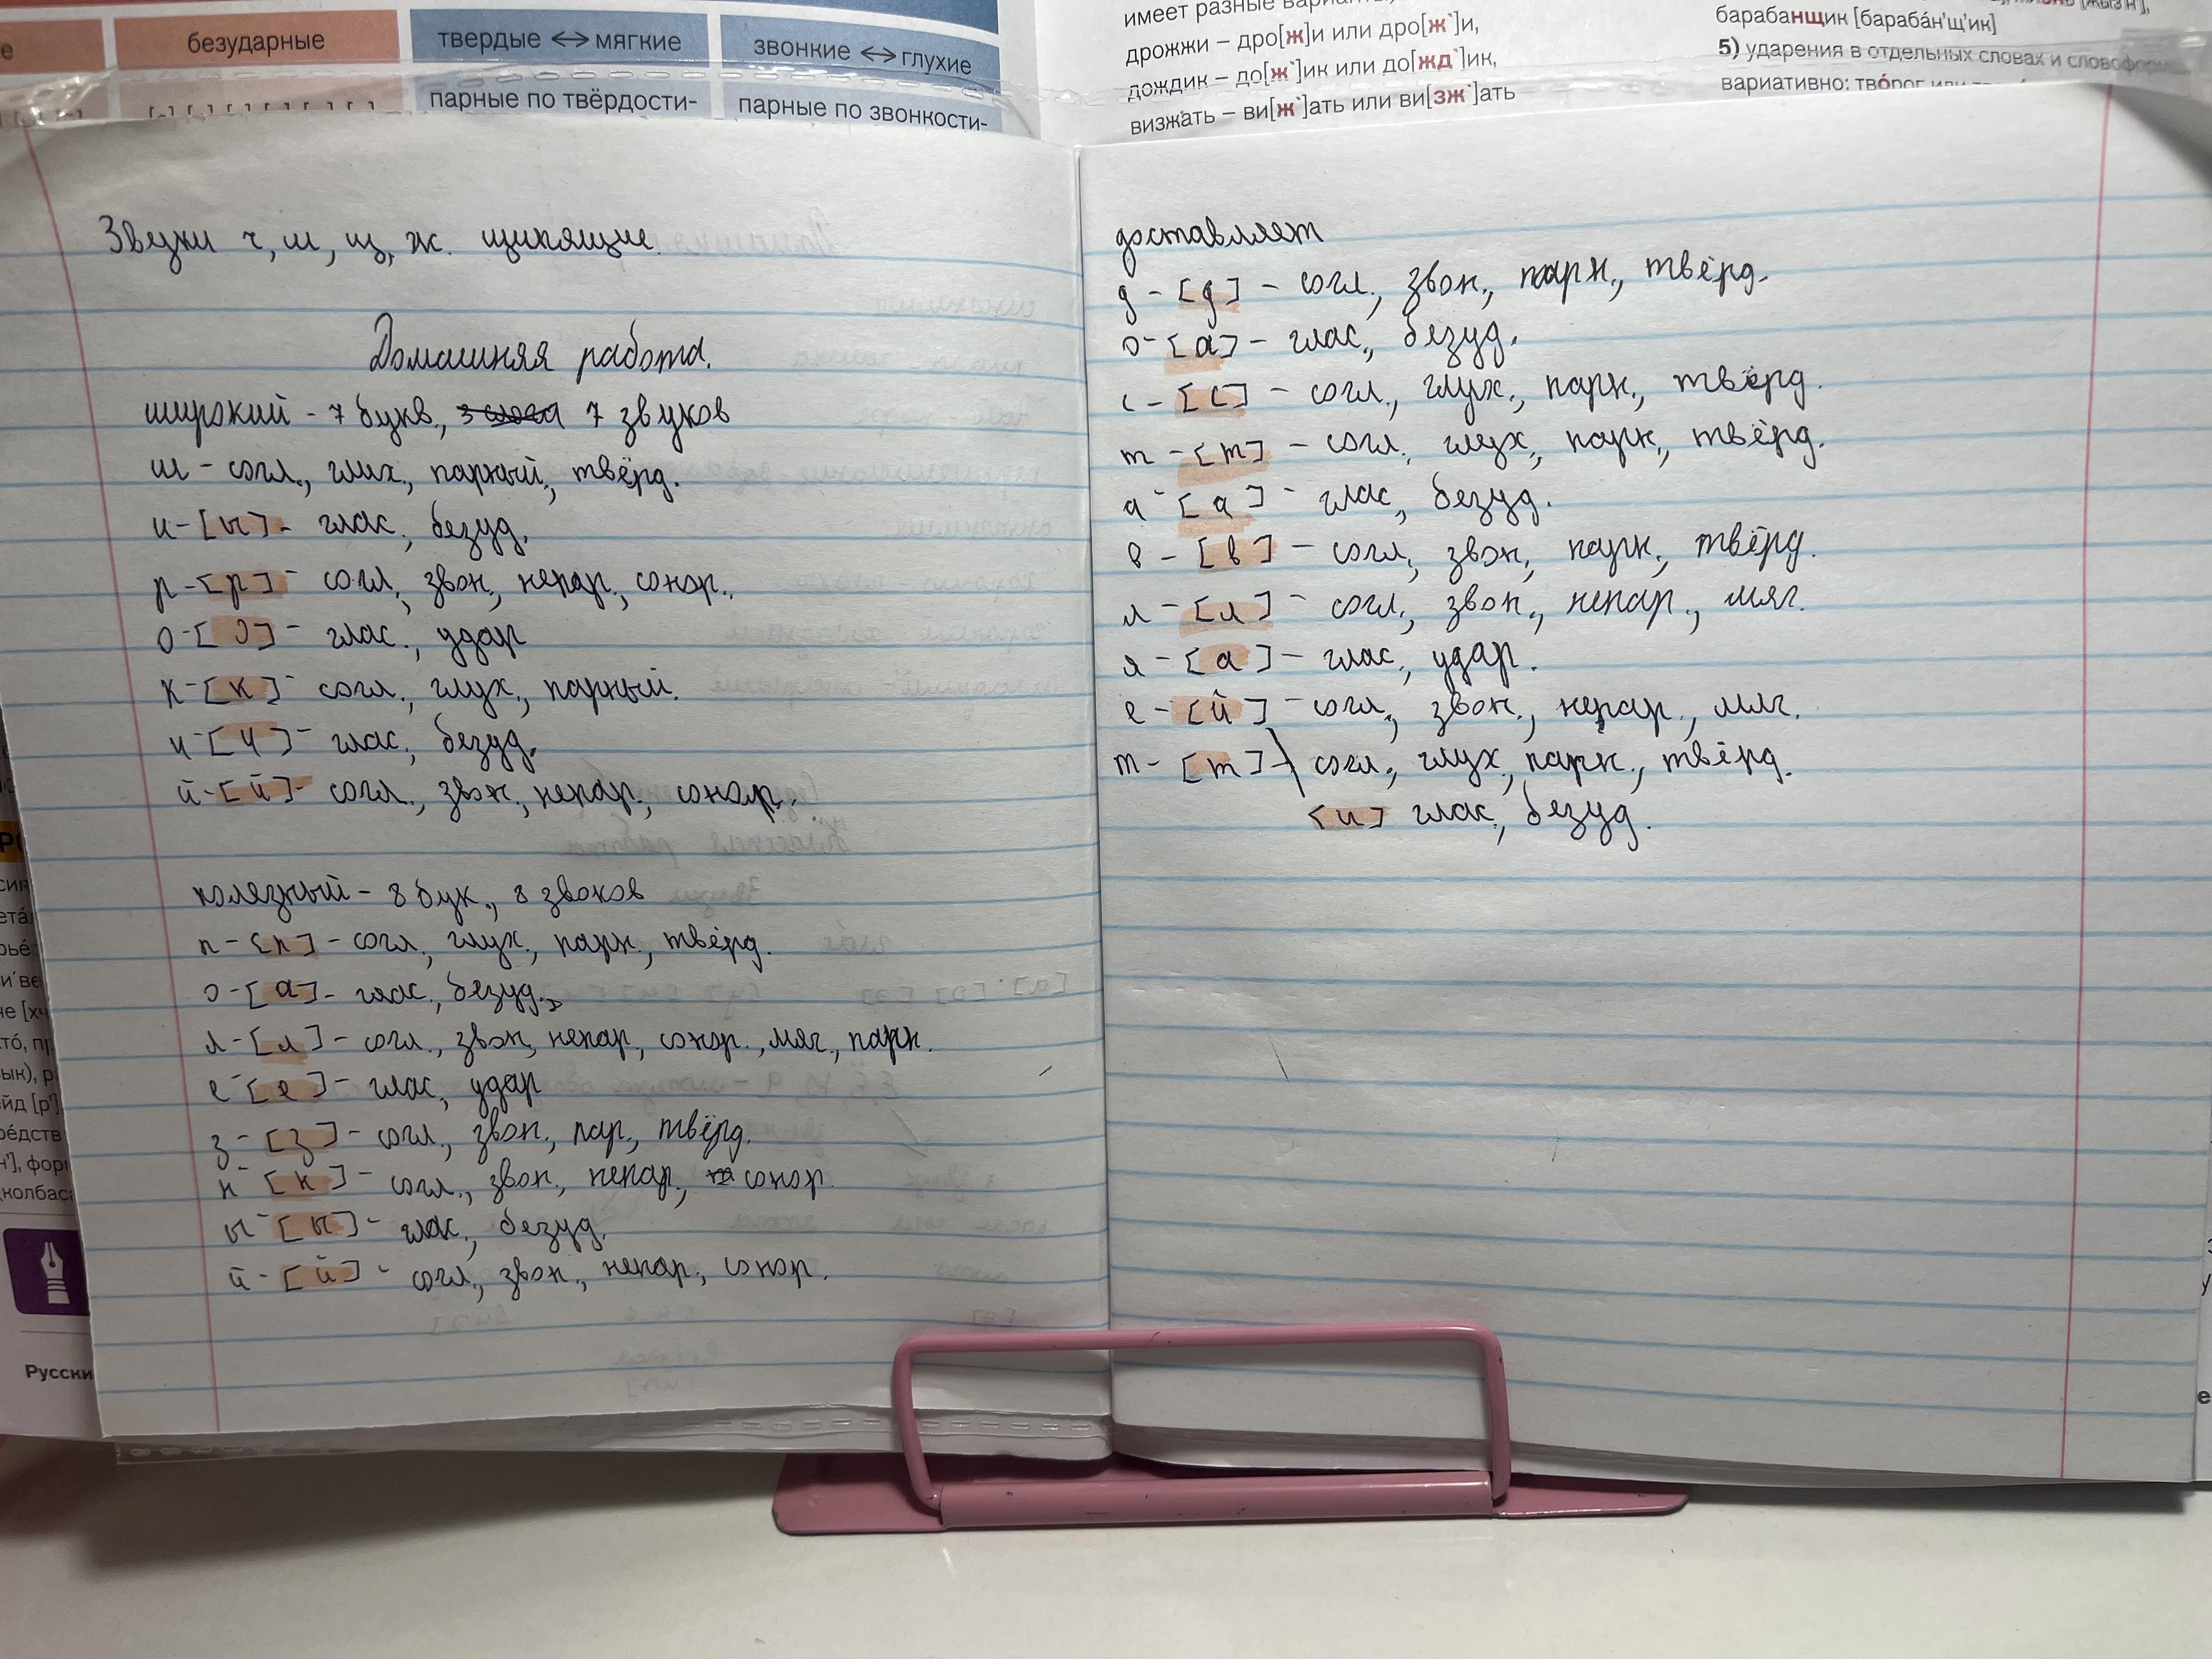 безударные
твердые ↔ мягкие
звонкие ↔ глухие
парные по твёрдости-
парные по звонкости-
имеет разные
дрожжи – дро[ж]и или дро[ж`]и,
дождик – до[ж`]ик или до[жд`]ик,
визжать – ви[ж`]ать или ви[зж`]ать
барабанщик [бараба́н'щ'ик]
5) ударения в отдельных словах и
вариативно: тво́рог или
Звуки ч, ш, щ, ж. щипящие.
Домашняя работа.
широкий - 7 букв., 3 слога 7 звуков
ш - согл., глух., парный., твёрд.
и - [ы] - глас., безуд.
р - [р] - согл., звон., непар., сонор.,
о - [о] - глас., удар
к - [к] - согл., глух., парный.
и - [и] - глас., безуд.
й - [й] - согл., звон., непар., сонор.
полезный - 8 бук., 8 звоков
п - [п] - согл., глух., парн., твёрд.
о - [а] - глас., безуд.
л - [л] - согл., звон, непар., сонор., мяг., парн.
е - [е] - глас., удар
з - [з] - согл., звон., пар., твёрд.
н - [н] - согл., звон., непар., сонор.
ы - [ы] - глас., безуд.
й - [й] - согл., звон., непар., сонор.
доставляет
д - [д] - согл., звон., парн., твёрд.
о - [а] - глас., безуд.
с - [с] - согл., глух., парн., твёрд.
т - [т] - согл., глух., парн., твёрд.
а - [а] - глас., безуд.
в - [в] - согл., звон., парн., твёрд.
л - [л] - согл., звон., непар., мяг.
я - [а] - глас., удар.
е - [й] - согл., звон., непар., мяг.
т - [т] - согл., глух., парн., твёрд.
[и] глас., безуд.
Русски